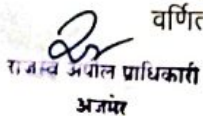 वर्णित
राजस्व अपील प्राधिकारी
अजमेर